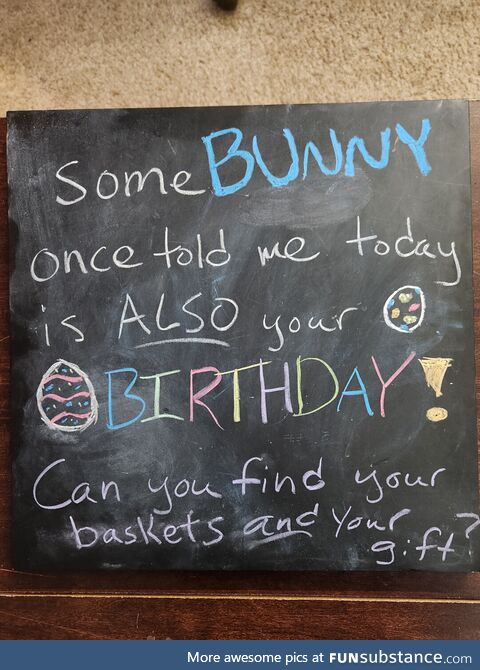 Some BUNNY
once told me today
is ALSO your
BIRTHDAY!
Can you find your
baskets and your
gift?
More awesome pics at FUNsubstance.com